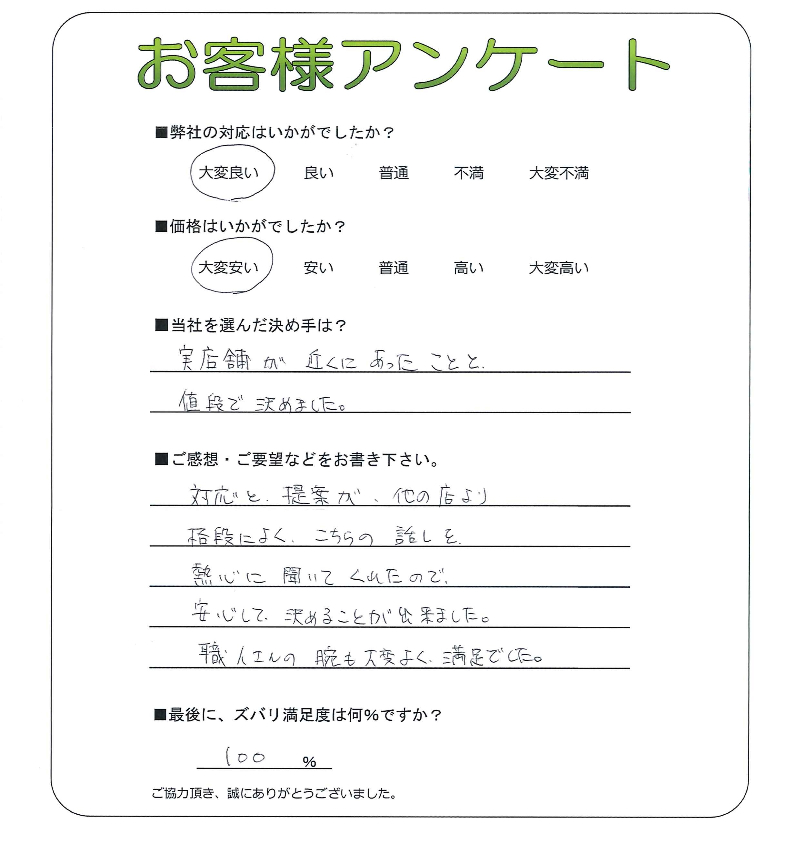 お客様アンケート
■弊社の対応はいかがでしたか？
大変良い 良い 普通 不満 大変不満
■価格はいかがでしたか？
大変安い 安い 普通 高い 大変高い
■当社を選んだ決め手は？
実店舗が近くにあったことと、
値段で決めました。
■ご感想・ご要望などをお書き下さい。
対応と、提案が、他の店より
格段によく、こちらの話しを、
熱心に聞いてくれたので、
安心して、決めることが出来ました。
職人さんの腕も大変よく、満足でした。
■最後に、ズバリ満足度は何％ですか？
100 ％
ご協力頂き、誠にありがとうございました。